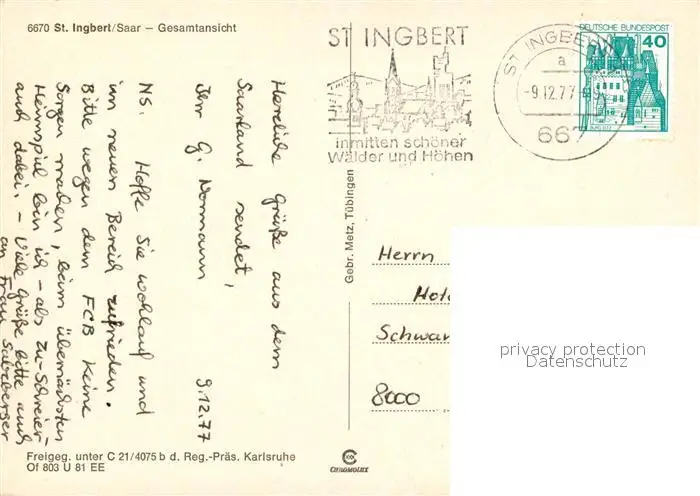 6670 St. Ingbert/Saar – Gesamtansicht
ST INGBERT
inmitten schöner
Wälder und Höhen
ST INGBERT
a
-9.12.77
667
DEUTSCHE BUNDESPOST
40
BURG ELTZ
Herzliche Grüße aus dem
Saarland sendet,
Ihr G. Normann
9.12.77
NS. Hoffe Sie wohlauf und
im neuen Bereich zufrieden.
Bitte wegen dem FCB keine
Sorgen machen, beim übernächsten
Heimspiel bin ich – als zu-Schreier-
auch dabei. – Viele Grüße bitte auch
an Frau
Gebr. Metz, Tübingen
Herrn
Schwan
8000
privacy protection
Datenschutz
Freigeg. unter C 21/4075 b d. Reg.-Präs. Karlsruhe
Of 803 U 81 EE
CHROMOLUX